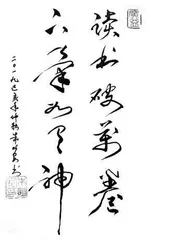 读书破万卷
下笔如有神
二〇一九己亥年仲秋